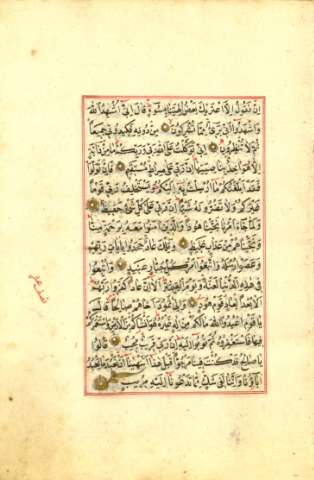 اِنْ نَقُولُ اِلَّا اعْتَرٰيكَ بَعْضُ اٰلِهَتِنَا بِسُوءٍ قَالَ اِنِّي اُشْهِدُ اللهَ
وَاشْهَدُوا اَنِّي بَرِيءٌ مِمَّا تُشْرِكُونَ مِنْ دُونِهِ فَكِيدُونِي جَمِيعًا
ثُمَّ لَا تُنْظِرُونِ اِنِّي تَوَكَّلْتُ عَلَى اللهِ رَبِّي وَرَبِّكُمْ مَا مِنْ دَابَّةٍ
اِلَّا هُوَ اٰخِذٌ بِنَاصِيَتِهَا اِنَّ رَبِّي عَلٰى صِرَاطٍ مُسْتَقِيمٍ فَاِنْ تَوَلَّوْا
فَقَدْ اَبْلَغْتُكُمْ مَا اُرْسِلْتُ بِهِ اِلَيْكُمْ وَيَسْتَخْلِفُ رَبِّي قَوْمًا
غَيْرَكُمْ وَلَا تَضُرُّونَهُ شَيْئًا اِنَّ رَبِّي عَلٰى كُلِّ شَيْءٍ حَفِيظٌ
وَلَمَّا جَاءَ اَمْرُنَا نَجَّيْنَا هُودًا وَالَّذِينَ اٰمَنُوا مَعَهُ بِرَحْمَةٍ مِنَّا
وَنَجَّيْنَاهُمْ مِنْ عَذَابٍ غَلِيظٍ وَتِلْكَ عَادٌ جَحَدُوا بِاٰيَاتِ رَبِّهِمْ
وَعَصَوْا رُسُلَهُ وَاتَّبَعُوا اَمْرَ كُلِّ جَبَّارٍ عَنِيدٍ وَاُتْبِعُوا
فِي هٰذِهِ الدُّنْيَا لَعْنَةً وَيَوْمَ الْقِيٰمَةِ اَلَا اِنَّ عَادًا كَفَرُوا رَبَّهُمْ
اَلَا بُعْدًا لِعَادٍ قَوْمِ هُودٍ وَاِلٰى ثَمُودَ اَخَاهُمْ صَالِحًا قَالَ
يَا قَوْمِ اعْبُدُوا اللهَ مَا لَكُمْ مِنْ اِلٰهٍ غَيْرُهُ هُوَ اَنْشَاَكُمْ مِنَ الْاَرْضِ وَاسْتَعْمَرَكُمْ
فِيهَا فَاسْتَغْفِرُوهُ ثُمَّ تُوبُوا اِلَيْهِ اِنَّ رَبِّي قَرِيبٌ مُجِيبٌ قَالُوا
يَا صَالِحُ قَدْ كُنْتَ فِينَا مَرْجُوًّا قَبْلَ هٰذَا اَتَنْهٰينَا اَنْ نَعْبُدَ مَا يَعْبُدُ
اٰبَاؤُنَا وَاِنَّنَا لَفِي شَكٍّ مِمَّا تَدْعُونَا اِلَيْهِ مُرِيبٍ